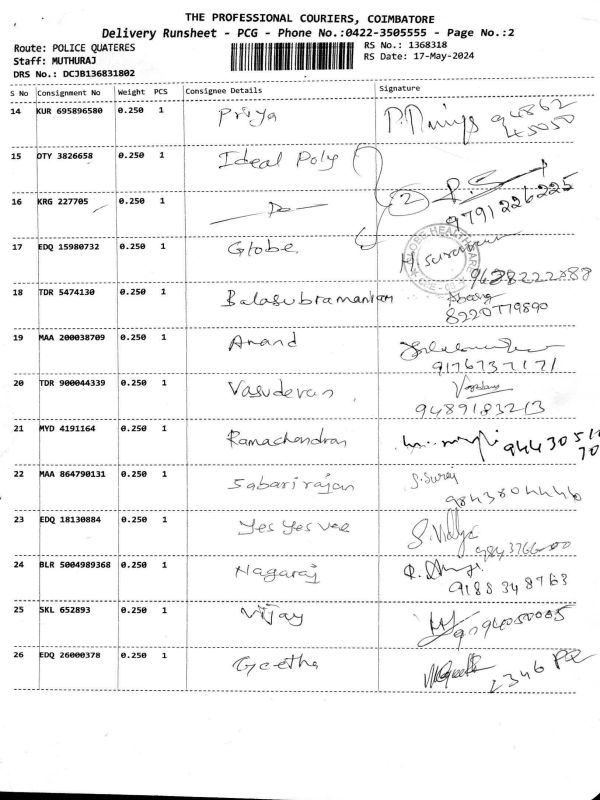 THE PROFESSIONAL COURIERS, COIMBATORE
Delivery Runsheet - PCG - Phone No.:0422-3505555 - Page No.:2
Route: POLICE QUATERES
RS No.: 1368318
Staff: MUTHURAJ
RS Date: 17-May-2024
DRS No.: DCJB136831802
S No Consignment No Weight PCS Consignee Details Signature
14 KUR 695896580 0.250 1 Priya 94862
45050
15 OTY 3826658 0.250 1 Ideal Poly
16 KRG 227705 0.250 1 2
9791226225
17 EDQ 15980732 0.250 1 Globe
18 TDR 5474130 0.250 1 Balasubramaniam
8220779890
19 MAA 200038709 0.250 1 Anand
9176737171
20 TDR 900044339 0.250 1 Vasudevan
9489183213
21 MYD 4191164 0.250 1 Ramachandran 9443051
70
22 MAA 864790131 0.250 1 Sabari rajan
9843804446
23 EDQ 18130884 0.250 1 Yes Yes Vee S. Vidya
24 BLR 5004989368 0.250 1 Nagaraj
9188348763
25 SKL 652893 0.250 1 Vijay
26 EDQ 26000378 0.250 1 Geetha